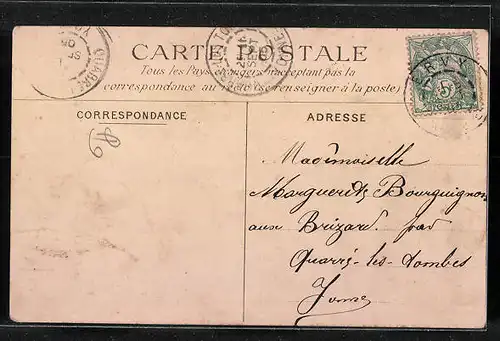 CARTE POSTALE
Tous les Pays étrangers n'acceptant pas la
correspondance au recto (se renseigner à la poste)
CORRESPONDANCE
ADRESSE
Mademoiselle
Marguerite Bourguignon
aux Brizard par
Quarré-les-Tombes
Yonne